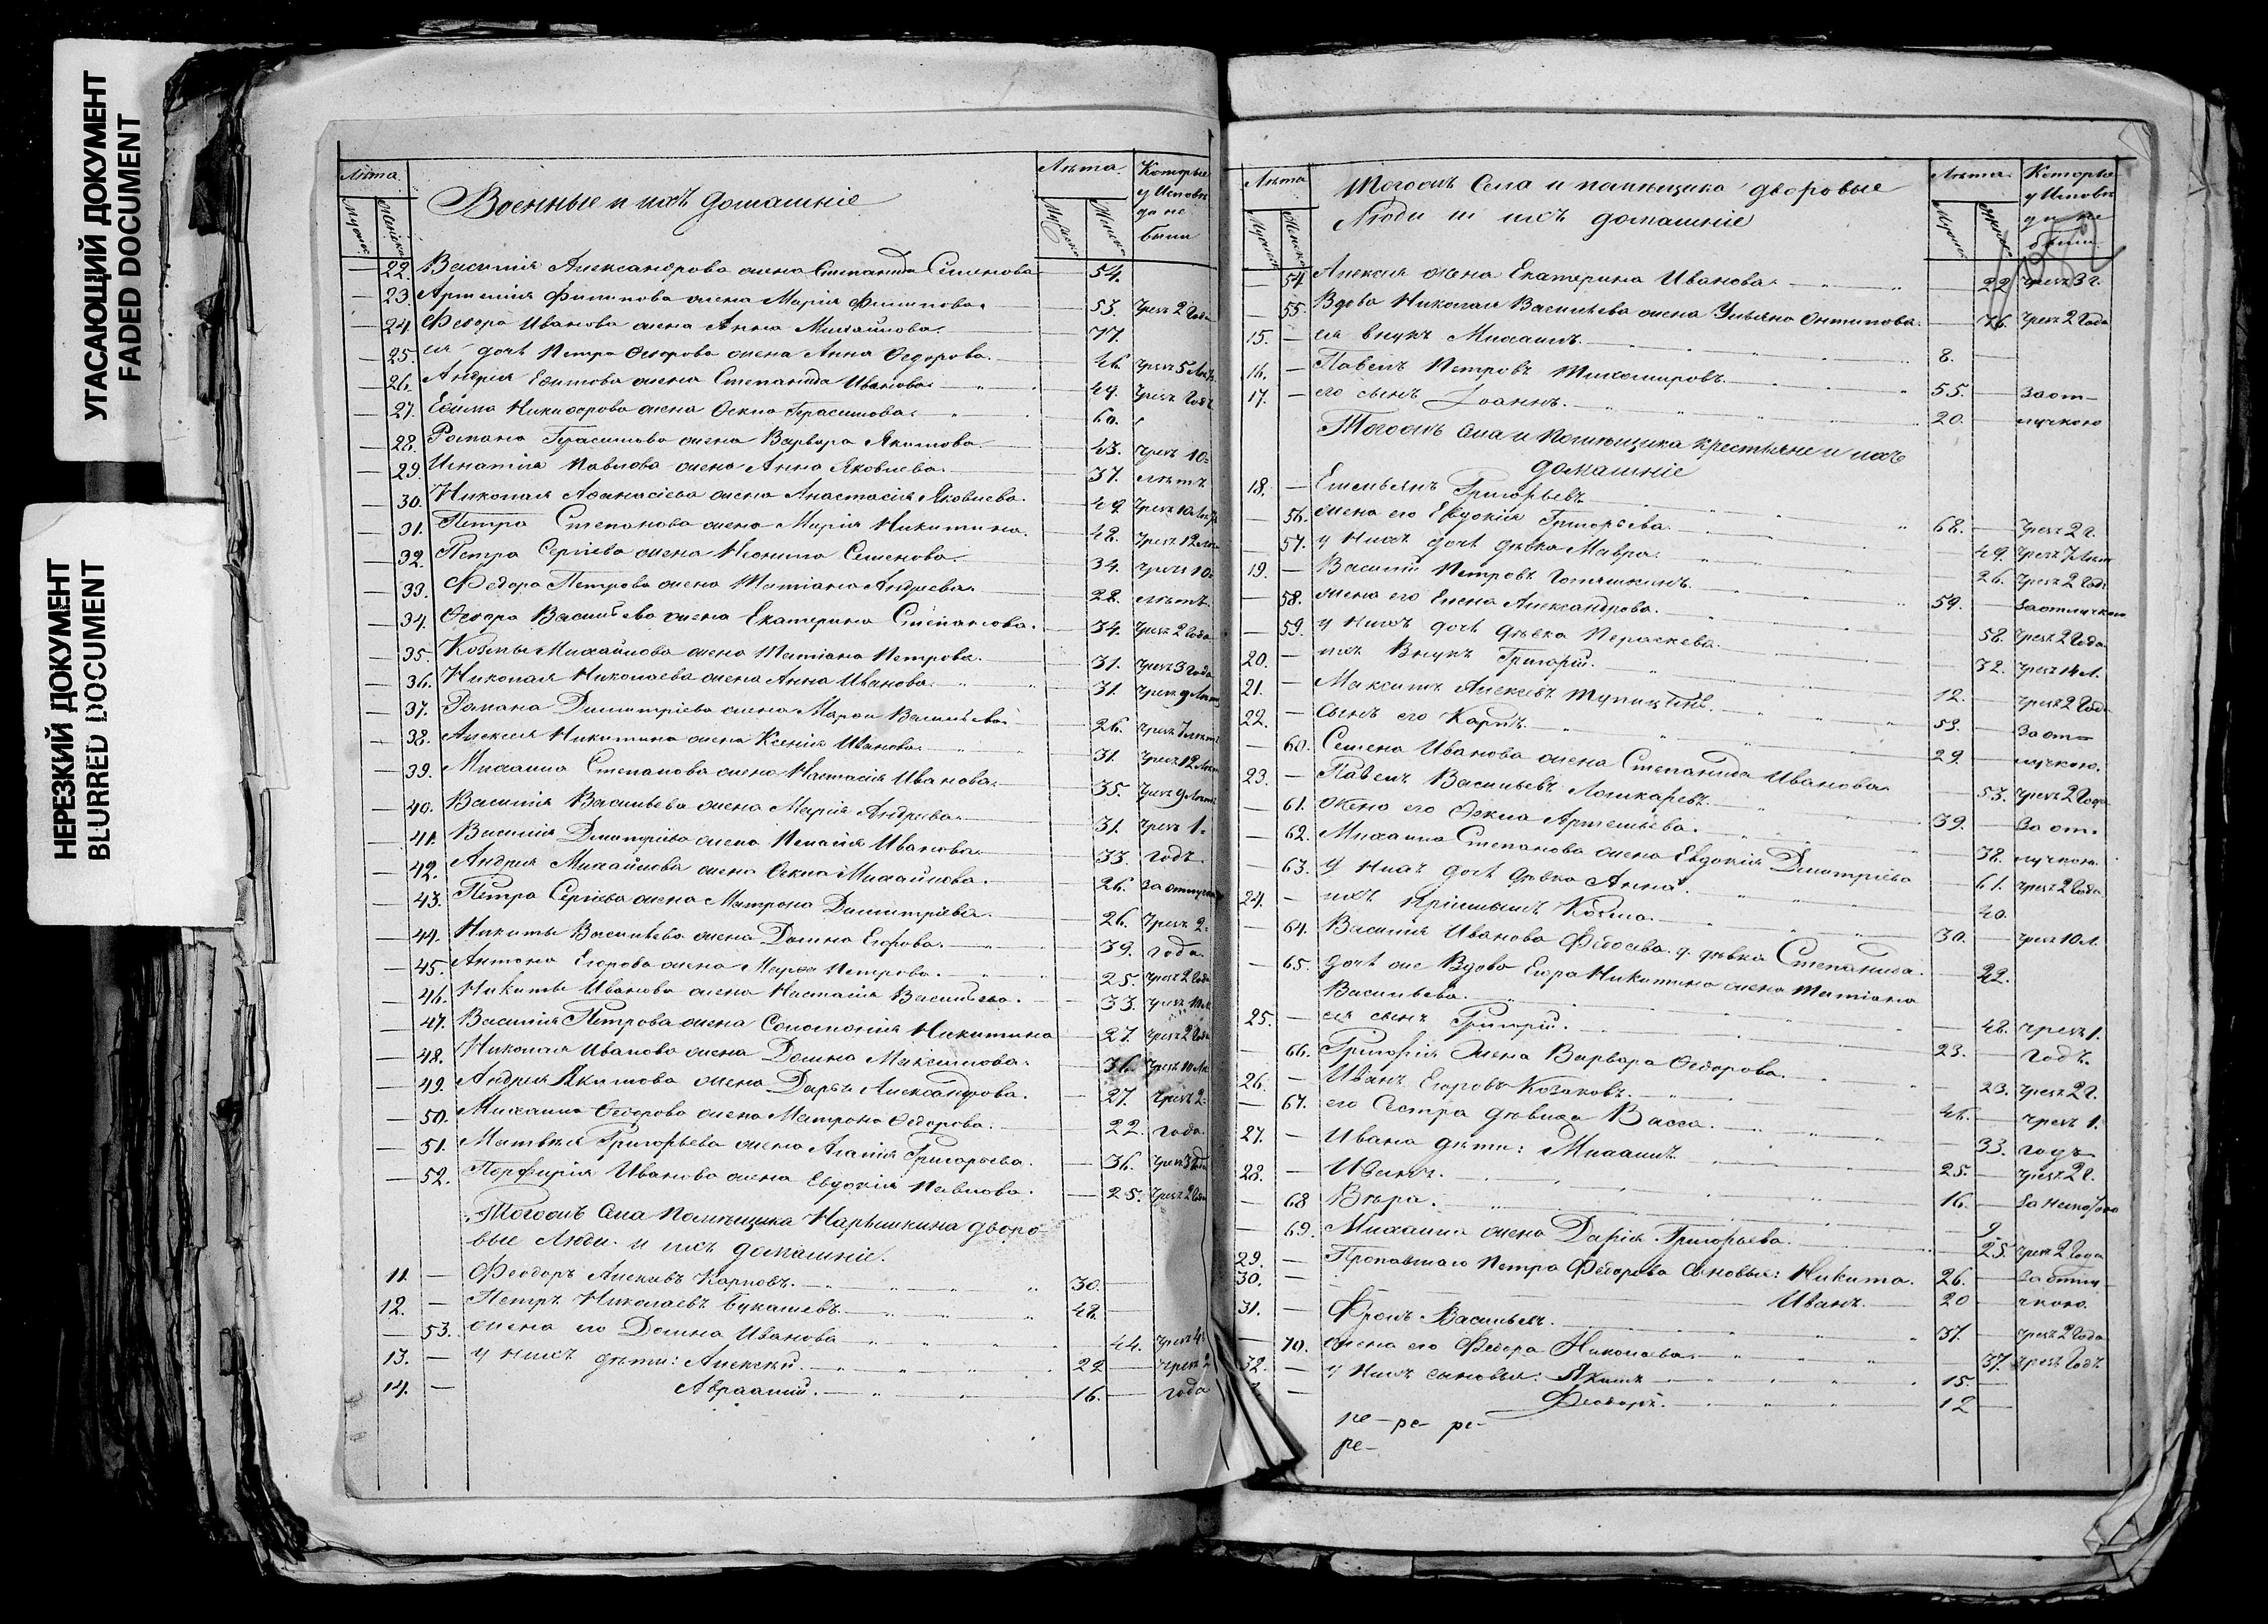 УГАСАЮЩИЙ ДОКУМЕНТ
FADED DOCUMENT
НЕРЕЗКИЙ ДОКУМЕНТ
BLURRED DOCUMENT
Лѣта. Военные и ихъ домашніе Лѣта. Которые у Исповѣди не были
— 22. Василія Александрова жена Степанида Семенова — 54.
— 23 Артемія Филипова жена Марія Филипова. — 53. Чрезъ 2 года
— 24. Федора Иванова жена Анна Михайлова. — 77.
— 25. ея дочь Петра Ѳедорова жена Анна Ѳедорова. — 46. Чрезъ 5 Лѣтъ
— 26. Андрея Ефимова жена Степанида Иванова. — 49. Чрезъ годъ
— 27. Ефима Никифорова жена Ѳекла Герасимова. — 60.
— 28. Романа Герасимова жена Варвара Якимова — 43. чрезъ 10=
— 29 Игнатія Павлова жена Анна Яковлева. — 37. лѣтъ
— 30. Николая Аѳанасіева жена Анастасія Яковлева. — 49 Чрезъ 10 Лѣтъ
— 31. Петра Степанова жена Марія Никитина. — 48. Чрезъ 12 Лѣтъ
— 32. Петра Сергіева жена Неонила Семенова. — 34. чрезъ 10=
— 33. Федора Петрова жена Татіана Андреева. — 28. лѣтъ.
— 34. Ѳедора Васильева жена Екатерина Степанова. — 34. Чрезъ 2 года
— 35. Козмы Михайлова жена Татіана Петрова. — 31. Чрезъ 3 года
— 36. Николая Николаева жена Анна Иванова. — 31. Чрезъ 9 Лѣтъ
— 37. Романа Димитріева жена Марѳа Васильева — 26. Чрезъ 7 лѣтъ
— 38. Алексея Никитина жена Ксенія Иванова. — 31. Чрезъ 12 Лѣтъ
— 39. Михаила Степанова жена Настасія Иванова. — 35. Чрезъ 9 Лѣтъ
— 40. Василія Васильева жена Марія Андреева. — 31. Чрезъ 1=
— 41. Василія Димитріева жена Пелагія Иванова. — 33. годъ.
— 42. Андрея Михайлова жена Ѳекла Михайлова. — 26. За отлучкою
— 43. Петра Сергіева жена Матрона Димитріева. — 26. Чрезъ 2=
— 44. Никиты Васильева жена Домна Егорова. — 39. года.
— 45. Антона Егорова жена Марѳа Петрова. — 25. Чрезъ 2 года
— 46. Никиты Иванова жена Настасія Васильева. — 33. Чрезъ 10 Л.
— 47. Василія Петрова жена Соломонія Никитина — 27. Чрезъ 2 года
— 48. Николая Иванова жена Домна Максимова. — 36. Чрезъ 10 Лѣ
— 49. Андрея Якимова жена Дарья Александрова. — 27. Чрезъ 2=
— 50. Михаила Ѳедорова жена Матрона Ѳедорова. — 22. года.
— 51. Матвея Григорьева жена Агапія Григорьева. — 36. Чрезъ 3 года
— 52. Порфирія Иванова жена Евдокія Павлова. — 25. Чрезъ 2 года
Тогожъ Села Помѣщика Нарышкина дворо-
вые Люди и ихъ домашніе.
11. — Феодоръ Алексѣевъ Карповъ. 30. —
12. — Петръ Николаевъ Букашевъ. 48. —
— 53. жена его Домна Иванова — 44. Чрезъ 4
13. — у нихъ дѣти: Алексѣй. 22 — Чрезъ 2
14. — Авраамій. 16. — года
Лѣта Тогожъ Села и помѣщика дворовые Лѣта. Которые у Исповѣди не были
Люди и ихъ домашніе
— 54. Алексея жена Екатерина Иванова. — 22 Чрезъ 3 г.
— 55. Вдова Николая Васильева жена Ульяна Онтипова. — 76. Чрезъ 2 года
15. — ея внукъ Михаилъ. 8. —
16. — Павелъ Петровъ Тихомировъ. 55. — За от—
17. — его сынъ Іоаннъ. 20. — лучкою
Тогожъ Села и Помѣщика крестьяне и ихъ
домашніе
18. — Емельянъ Григорьевъ 68. — Чрезъ 2 г.
— 56. жена его Евдокія Григорьева. — 49. Чрезъ 7 Лѣт
— 57. у нихъ дочь дѣвка Мавра. — 26. Чрезъ 2 года
19. — Василій Петровъ Голяшкинъ. 59. — За отлучкою
— 58. жена его Елена Александрова. — 58. Чрезъ 2 года
— 59. у нихъ дочь дѣвка Параскева. — 32. Чрезъ 14 Л.
20. — ихъ Внукъ Григорій. 12. — Чрезъ 2 года
21. — Максимъ Алексѣевъ Тупицынъ. 53. — За от=
22. — Сынъ его Карпъ. 29. — лучкою.
— 60. Семена Иванова жена Степанида Иванова — 53. Чрезъ 2 года
23. — Павелъ Васильевъ Ломкаревъ. 39. — За от.
— 61. жена его Ѳекла Артемьева. — 38. лучкою.
— 62. Михаила Степанова жена Евдокія Димитріева — 61. Чрезъ 2 года
— 63. У нихъ дочь дѣвка Анна. — 40.
24. — ихъ пріимышъ Козма. 30. — Чрезъ 10 Л.
— 64. Василія Иванова Федосѣева д. дѣвка Степанида. — 22.
— 65. дочь же Вдова Егора Никитина жена Татіана
Васильева. — 48. Чрезъ 1.
25. — ея сынъ Григорій. 23. — годъ.
— 66. Григорія Жена Варвара Ѳедорова. — 23. Чрезъ 2 г.
26. — Иванъ Егоровъ Козаковъ. 46. — Чрезъ 1.
— 67. его Сестра дѣвица Васса. — 33. годъ
27. — Ивана дѣти: Михаилъ 25. — Чрезъ 2 г.
28. — Иванъ. 16. —
— 68 Вѣра. — 9.
— 69. Михаила жена Дарія Григорьева. — 25. Чрезъ 2 года
29. — Пропавшаго Петра Федорова Сыновья: Никита. 26. — За отлу—
30. — Иванъ. 20 — чкою.
31. — Фролъ Васильевъ. 37. — Чрезъ 2 года
— 70. жена его Федора Николаева — 37. Чрезъ годъ
32. — у нихъ сыновья: Якимъ 15. —
— Феодоръ. 12 —
ре— ре— ре—
ре—